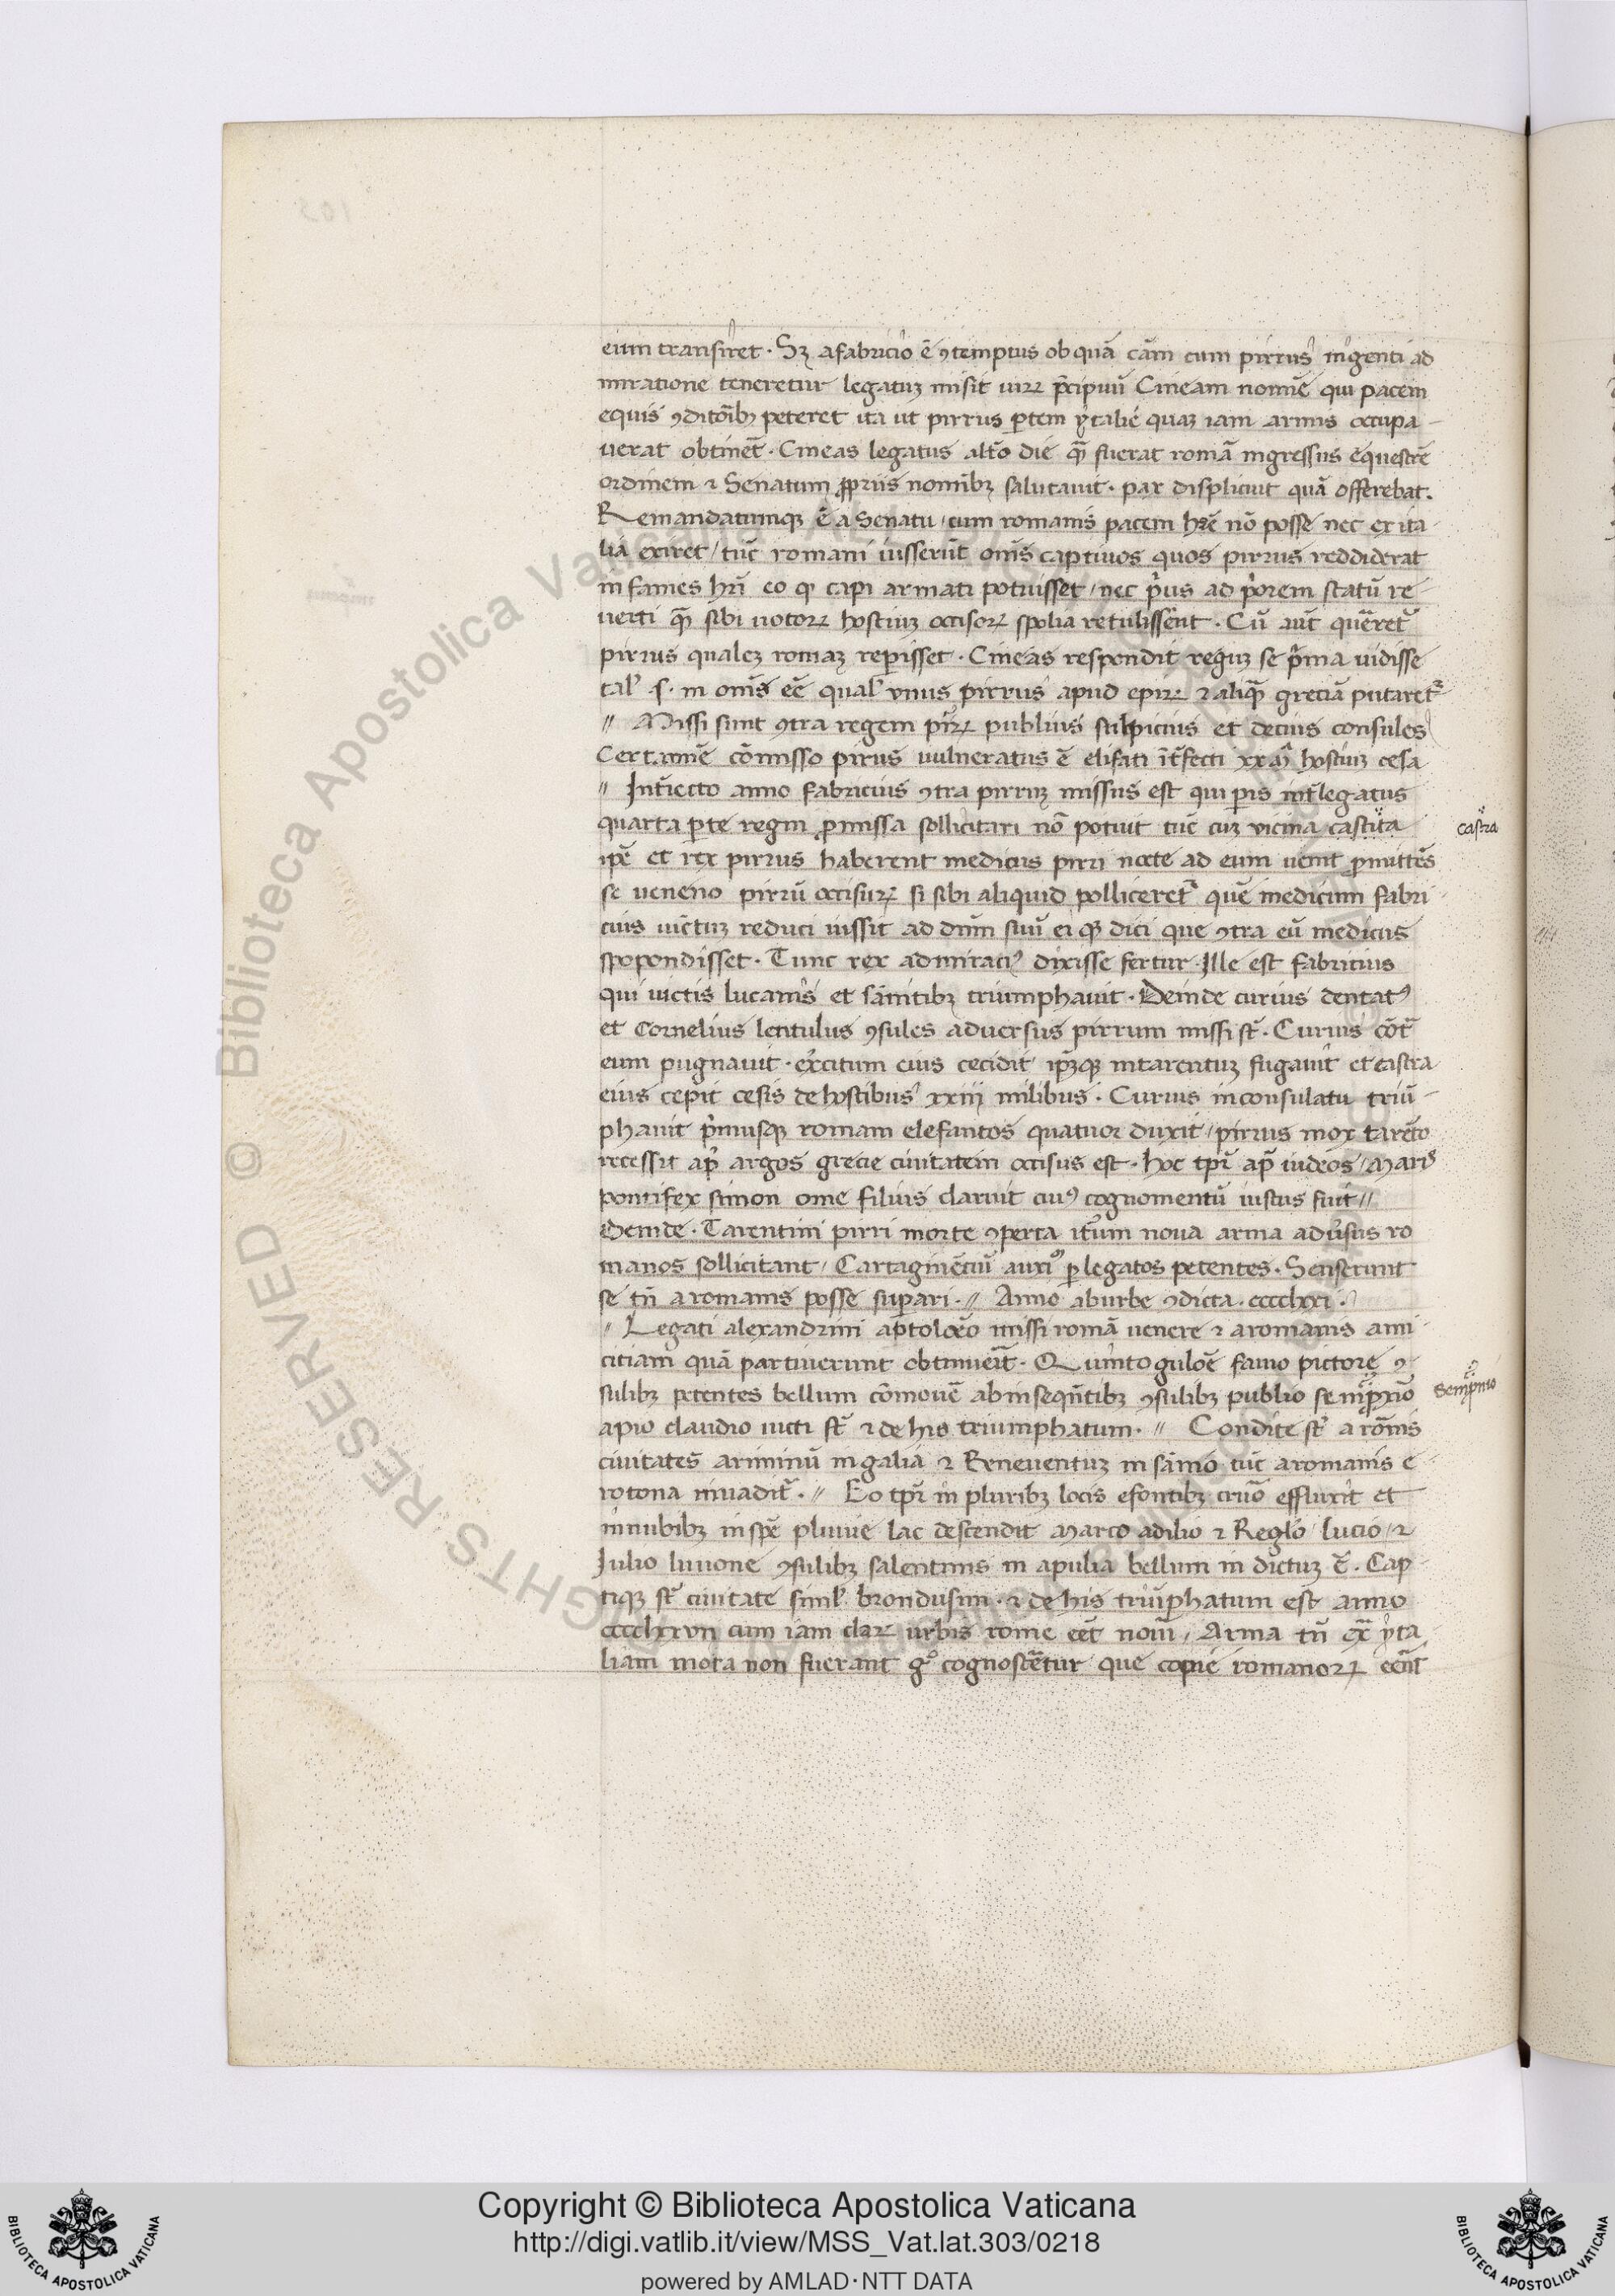 eum transiret. Sꝫ a fabricio ē ꝯtemptus ob quā cām cum pirrus ingenti ad
miratione teneretur legatuꝫ misit uirꝝ p̄cipuū Cineam nomīe qui pacem
equis ꝯditōibꝫ peteret ita ut pirrus ꝑtem ytalie quaꝫ iam armis occupa-
uerat obtinēt. Cineas legatus alt̄o die qᷓ fuerat romā ingressus equestrē
ordinem ⁊ Senatum ꝓpriis nomībꝫ salutauit. pax displicuit quā offerebat.
Remandatumqꝫ ē a Senatu / cum romanis pacem hr̄e nō posse nec ex ita-
lia exiret / tūc romani iusserūt om̄s captiuos quos pirrus reddiderat
in fames hr̄i eo ꝙ capi armati potuisset / nec pⁱus ad pⁱorem statū re-
uerti qᷓ sibi uotorꝝ hostiuꝫ occisorꝝ spolia retulissēnt. Cū aūt querret̄
pirrus qualeꝫ romaꝫ reperisset. Cineas respondit reguꝫ se pⁱma uidisse
tal̓ .s. in om̄s eē qual̓ vnus pirrus apud epirꝝ ⁊ aliqᷓ greciā putaretᷣ
// Missi sunt ꝯtra regem pirꝝ publius sulpicius et decius consules
Certamē cōmisso pirus uulneratus ē elifati īt̄fecti xx m̄ hostiuꝫ cesa
// Int̄iecto anno fabricius ꝯtra pirruꝫ missus est qui pⁱis int̄ legatus
quarta ꝑte regni ꝓmissa sollicitari nō potuit tūc cuꝫ vicina castita
castra
ip̄e et rex pirrus haberent medicus pirri nocte ad eum uenit ꝓmittēs
se ueneno pirrū occisurꝝ si sibi aliquid polliceretᷣ quē medicum fabri-
cius uīctuꝫ reduci iussit ad dūm suū ei qꝫ dici que ꝯtra eū medicus
spopondisset. Tunc rex admiratꝰ dixisse fertur. Ille est fabricius
qui uictis lucanis et sānitibꝫ triumphauit. Deinde curius dentatꝰ
et Cornelius lentulus ꝯsules aduersus pirrum missi st̄. Curius cōt̄
eum pugnauit. ex̄citum eius cecidit ip̄ꝫqꝫ intarentuꝫ fugauit et castra
eius cepit cesis de hostibus xxiij milibus. Curius in consulatu triū-
phauit pⁱmusqꝫ romam elefantos quatuor duxit / pirrus mox tarēto
recessit ap̄ argos grecie ciuitatem occisus est. hoc tp̄r ap̄ iudeos / Mariꝰ
pontifex simon ome filius claruit cuiꝰ cognomentū iustus fuit //
Deinde. Tarentini pirri morte ꝯperta it̄um nova arma aduⁱsus ro
manos sollicitant / Cartaginēciū auxiᵒ ꝑ legatos petentes. Senserunt
se tn̄ a romanis posse suꝑari. // Anno ab urbe ꝯdicta. cccclxxi.
// Legati alexandrini a p̄tolom̄eo missi romā venere ⁊ a romanis ami-
citiam quā partiuerunt obtinuēit̄. Quinto gulōe famo pictore ꝯ-
sulibꝫ petentes bellum cōmouē ab insequētibꝫ ꝯsulibꝫ publio semp̄xio
Semp̄nio
apio claudio uicti st̄ ⁊ de his triumphatum. // Condite st̄ a rōmis
ciuitates ariminū in galia ⁊ Beneventuꝫ in sānio tūc a romanis c-
rotona inuadit̄. // Eo tp̄r in pluribꝫ locis e fontibꝫ cruō effluxit et
in nubibꝫ in spē pluuie lac descendit Marco adilio ⁊ Reglo / lucio / ⁊
Iulio liuione ꝯsulibꝫ salentinis in apulia bellum in dictuꝫ ē. Cap-
tiqꝫ st̄ ciuitate simil̓ brondusini. ⁊ de his triūphatum est anno
cccclxxvii cum iam clarꝝ urbis rome eēt nom̄ / Arma tn̄ exᷓ yta
liam mota non fuerant g̊ cognoscētur que copie romanorꝝ eēnt